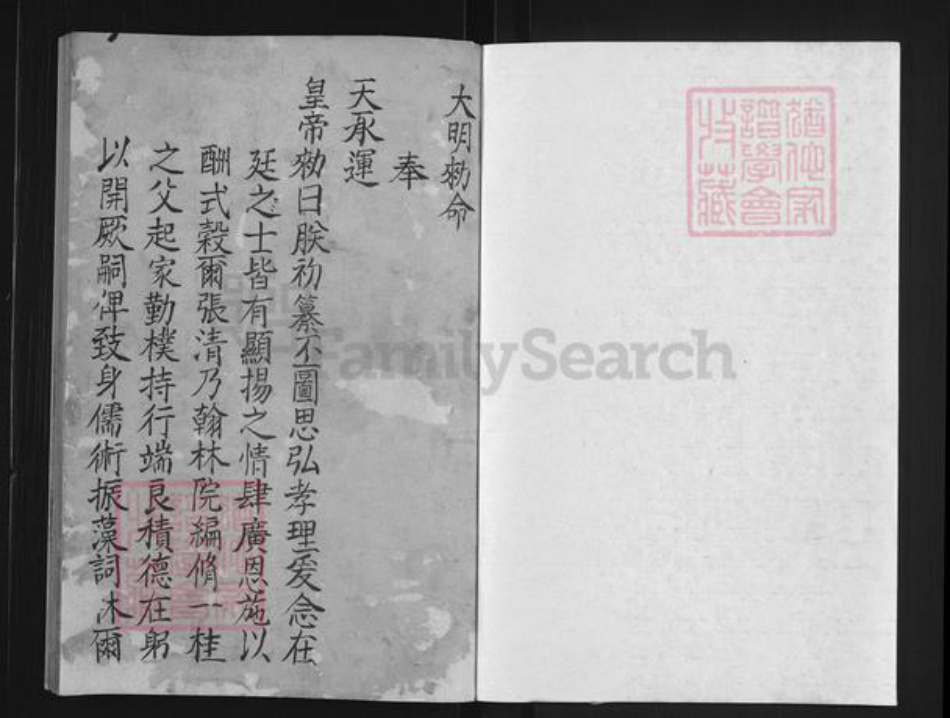 大明勑命
奉
天承運
皇帝勑曰朕初纂丕圖思弘孝理爰念在
廷之士皆有顯揚之情肆廣恩施以
酬式穀爾張清乃翰林院編脩一桂
之父起家勤樸持行端良積德在躬
以開厥嗣俾致身儒術振藻詞林爾
FamilySearch